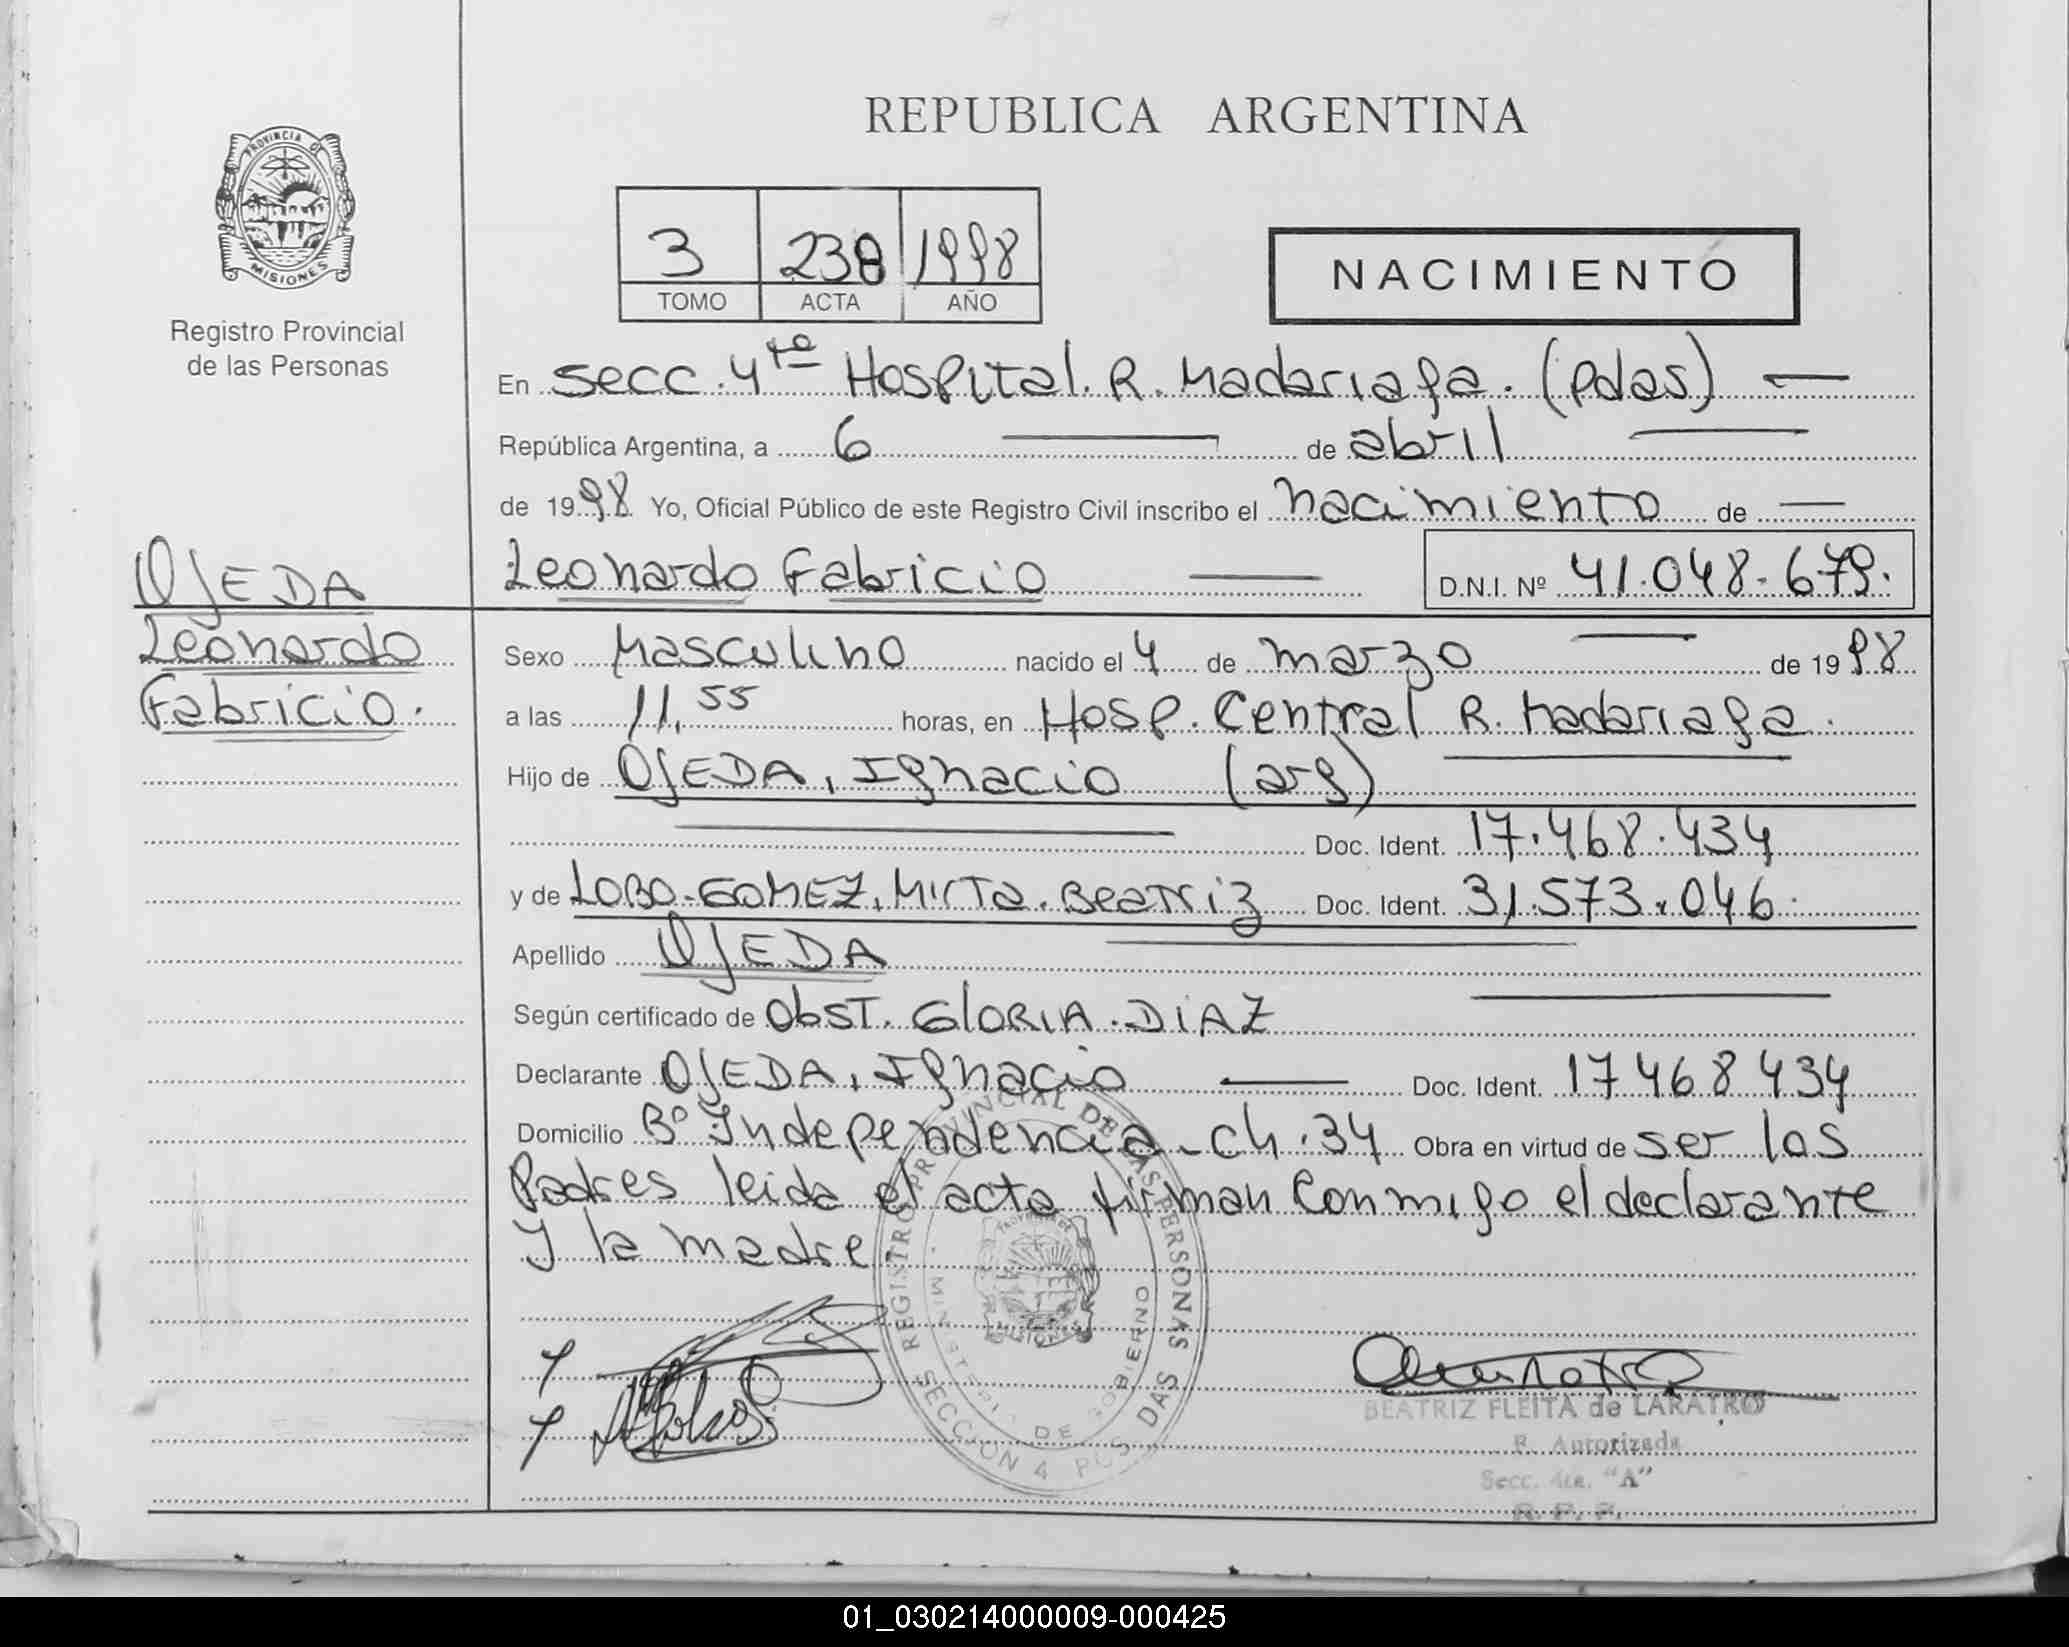 REPUBLICA ARGENTINA
PROVINCIA DE
MISIONES
Registro Provincial
de las Personas
3 238 1998
TOMO ACTA AÑO
NACIMIENTO
En secc. 4ta Hospital. R. Madariaga. (Pdas)
República Argentina, a 6 de abril
de 1998 Yo, Oficial Público de este Registro Civil inscribo el nacimiento de
Leonardo Fabricio D.N.I. Nº 41.048.679.
OJEDA
Leonardo
Fabricio.
Sexo Masculino nacido el 4 de marzo de 1998
a las 11,55 horas, en Hosp. Central R. Madariaga.
Hijo de OJEDA, Ignacio (arg)
Doc. Ident. 17.468.434
y de LOBO-GOMEZ, Mirta. Beatriz Doc. Ident. 31.573.046.
Apellido OJEDA
Según certificado de Obst. GLORIA. DIAZ
Declarante OJEDA, Ignacio Doc. Ident. 17468434
Domicilio Bº Independencia - ch. 34 Obra en virtud de ser los
Padres leida el acta firman conmigo el declarante
y la madre
REGISTRO PROVINCIAL DE LAS PERSONAS
MINISTERIO DE GOBIERNO
MISIONES
SECCION 4 POSADAS
BEATRIZ FLEITA de LARATRO
R. Autorizada
Secc. 4ta. "A"
R. P. P.
01_030214000009-000425